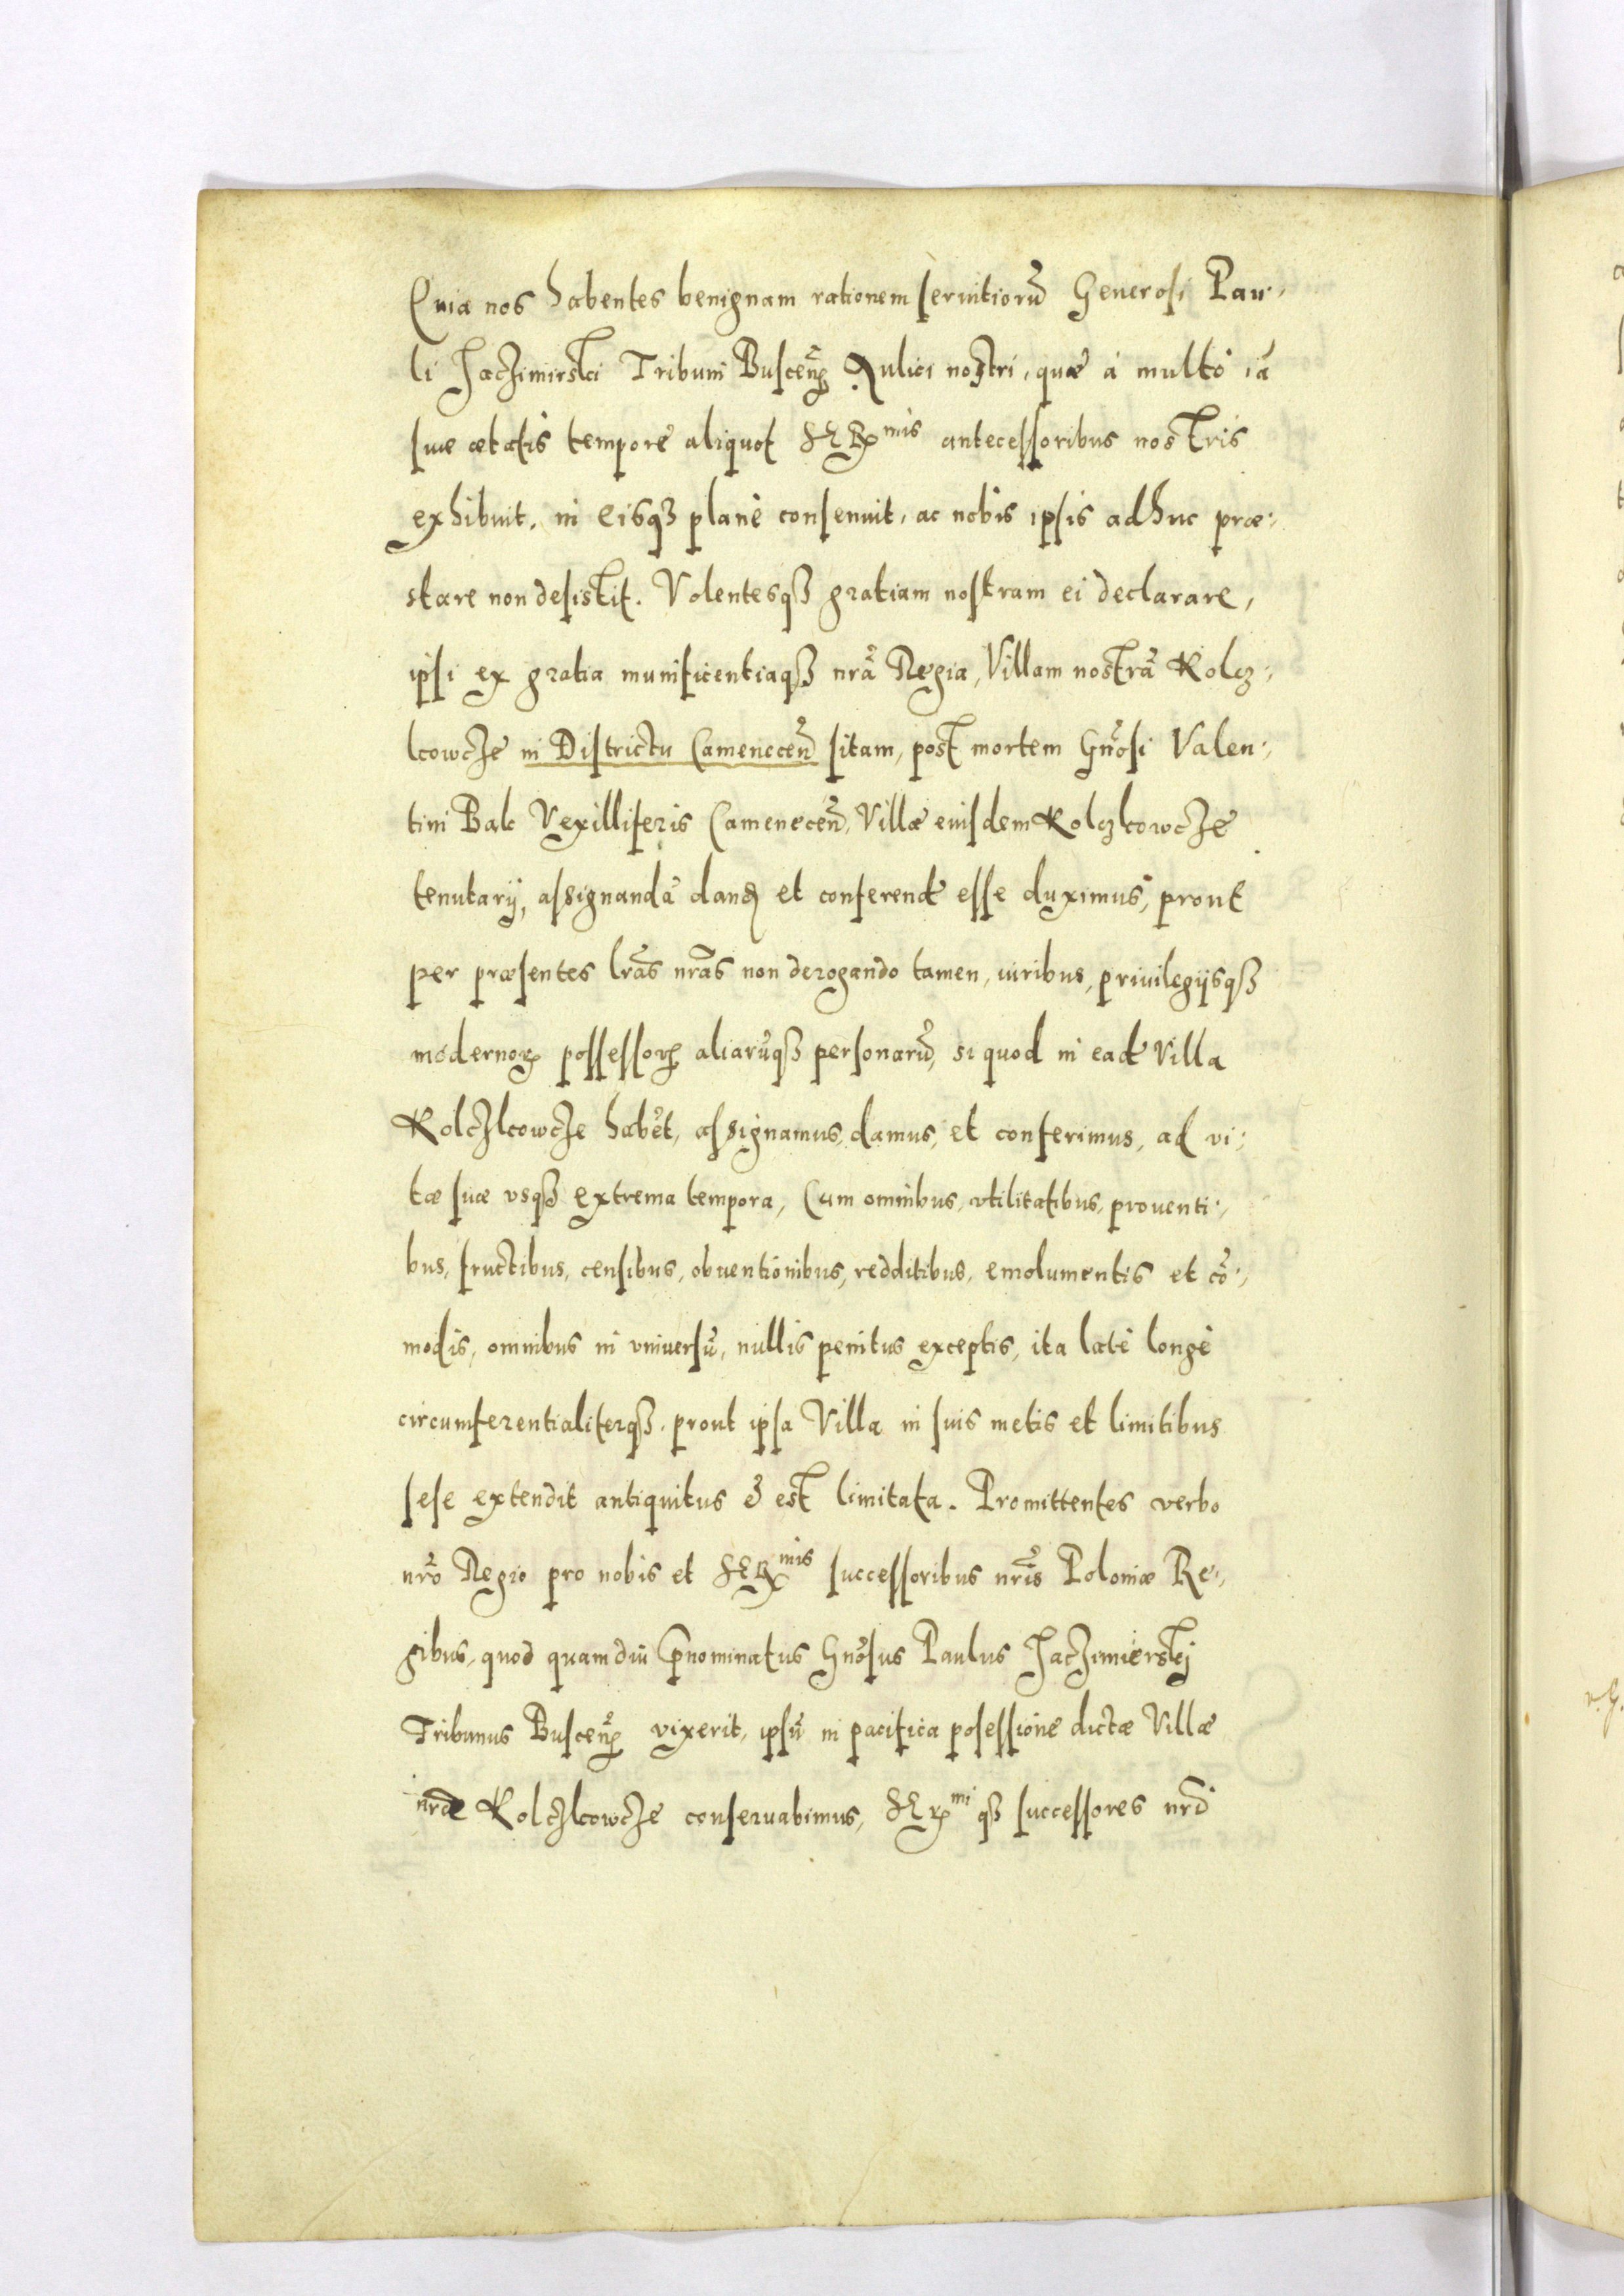 Quia nos habentes benignam rationem seruitiorũ Generosi Pau:
li Jaczimirski Tribuni Buscen̄ Aulici nostri, quæ à multo iã
suæ ætatis tempore aliquot SER^mis antecessoribus nostris
exhibuit, in eisqȝ planè consenuit, ac nobis ipsis adhuc præ:
stare non desistit. Volentesqȝ gratiam nostram ei declarare,
ipsi ex gratia munificentiaqȝ nrã Regia, Villam nostrã Kolcz:
kowcze in Districtu Camenecen̄ sitam, post mortem Gnõsi Valen:
tini Bak Vexilliferis Camenecen̄, Villæ eiusdem Kolczkowcze
tenutarij, assignandã dand et conferend esse duximus, prout
per præsentes lrãs nrãs non derogando tamen, iuribus, priuilegijsqȝ
modernoꝝ possessoꝝ aliarũqȝ personarũ, si quod in ead Villa
Kolczkowcze habẽt, assignamus, damus, et conferimus, ad vi:
tæ suæ vsqȝ extrema tempora, Cum omnibus, vtilitatibus, prouenti:
bus, fructibus, censibus, obuentionibus, redditibus, emolumentis et cõ:
modis, omnibus in vniuersũ, nullis penitus exceptis, ita latè longè
circumferentialiterqȝ, prout ipsa Villa in suis metis et limitibus
sese extendit antiquitus & est limitata. Promittentes verbo
nrõ Regio pro nobis et SER^mis successoribus nrĩs Poloniæ Re:
gibus, quod quamdiu p̄nominatus Gnõsus Paulus Jaczimierskj
Tribunus Buscen̄ vixerit, ipsũ in pacifica posessione dictæ Villæ
nrãe Kolczkowcze conseruabimus, SER^mi qȝ successores nrĩ